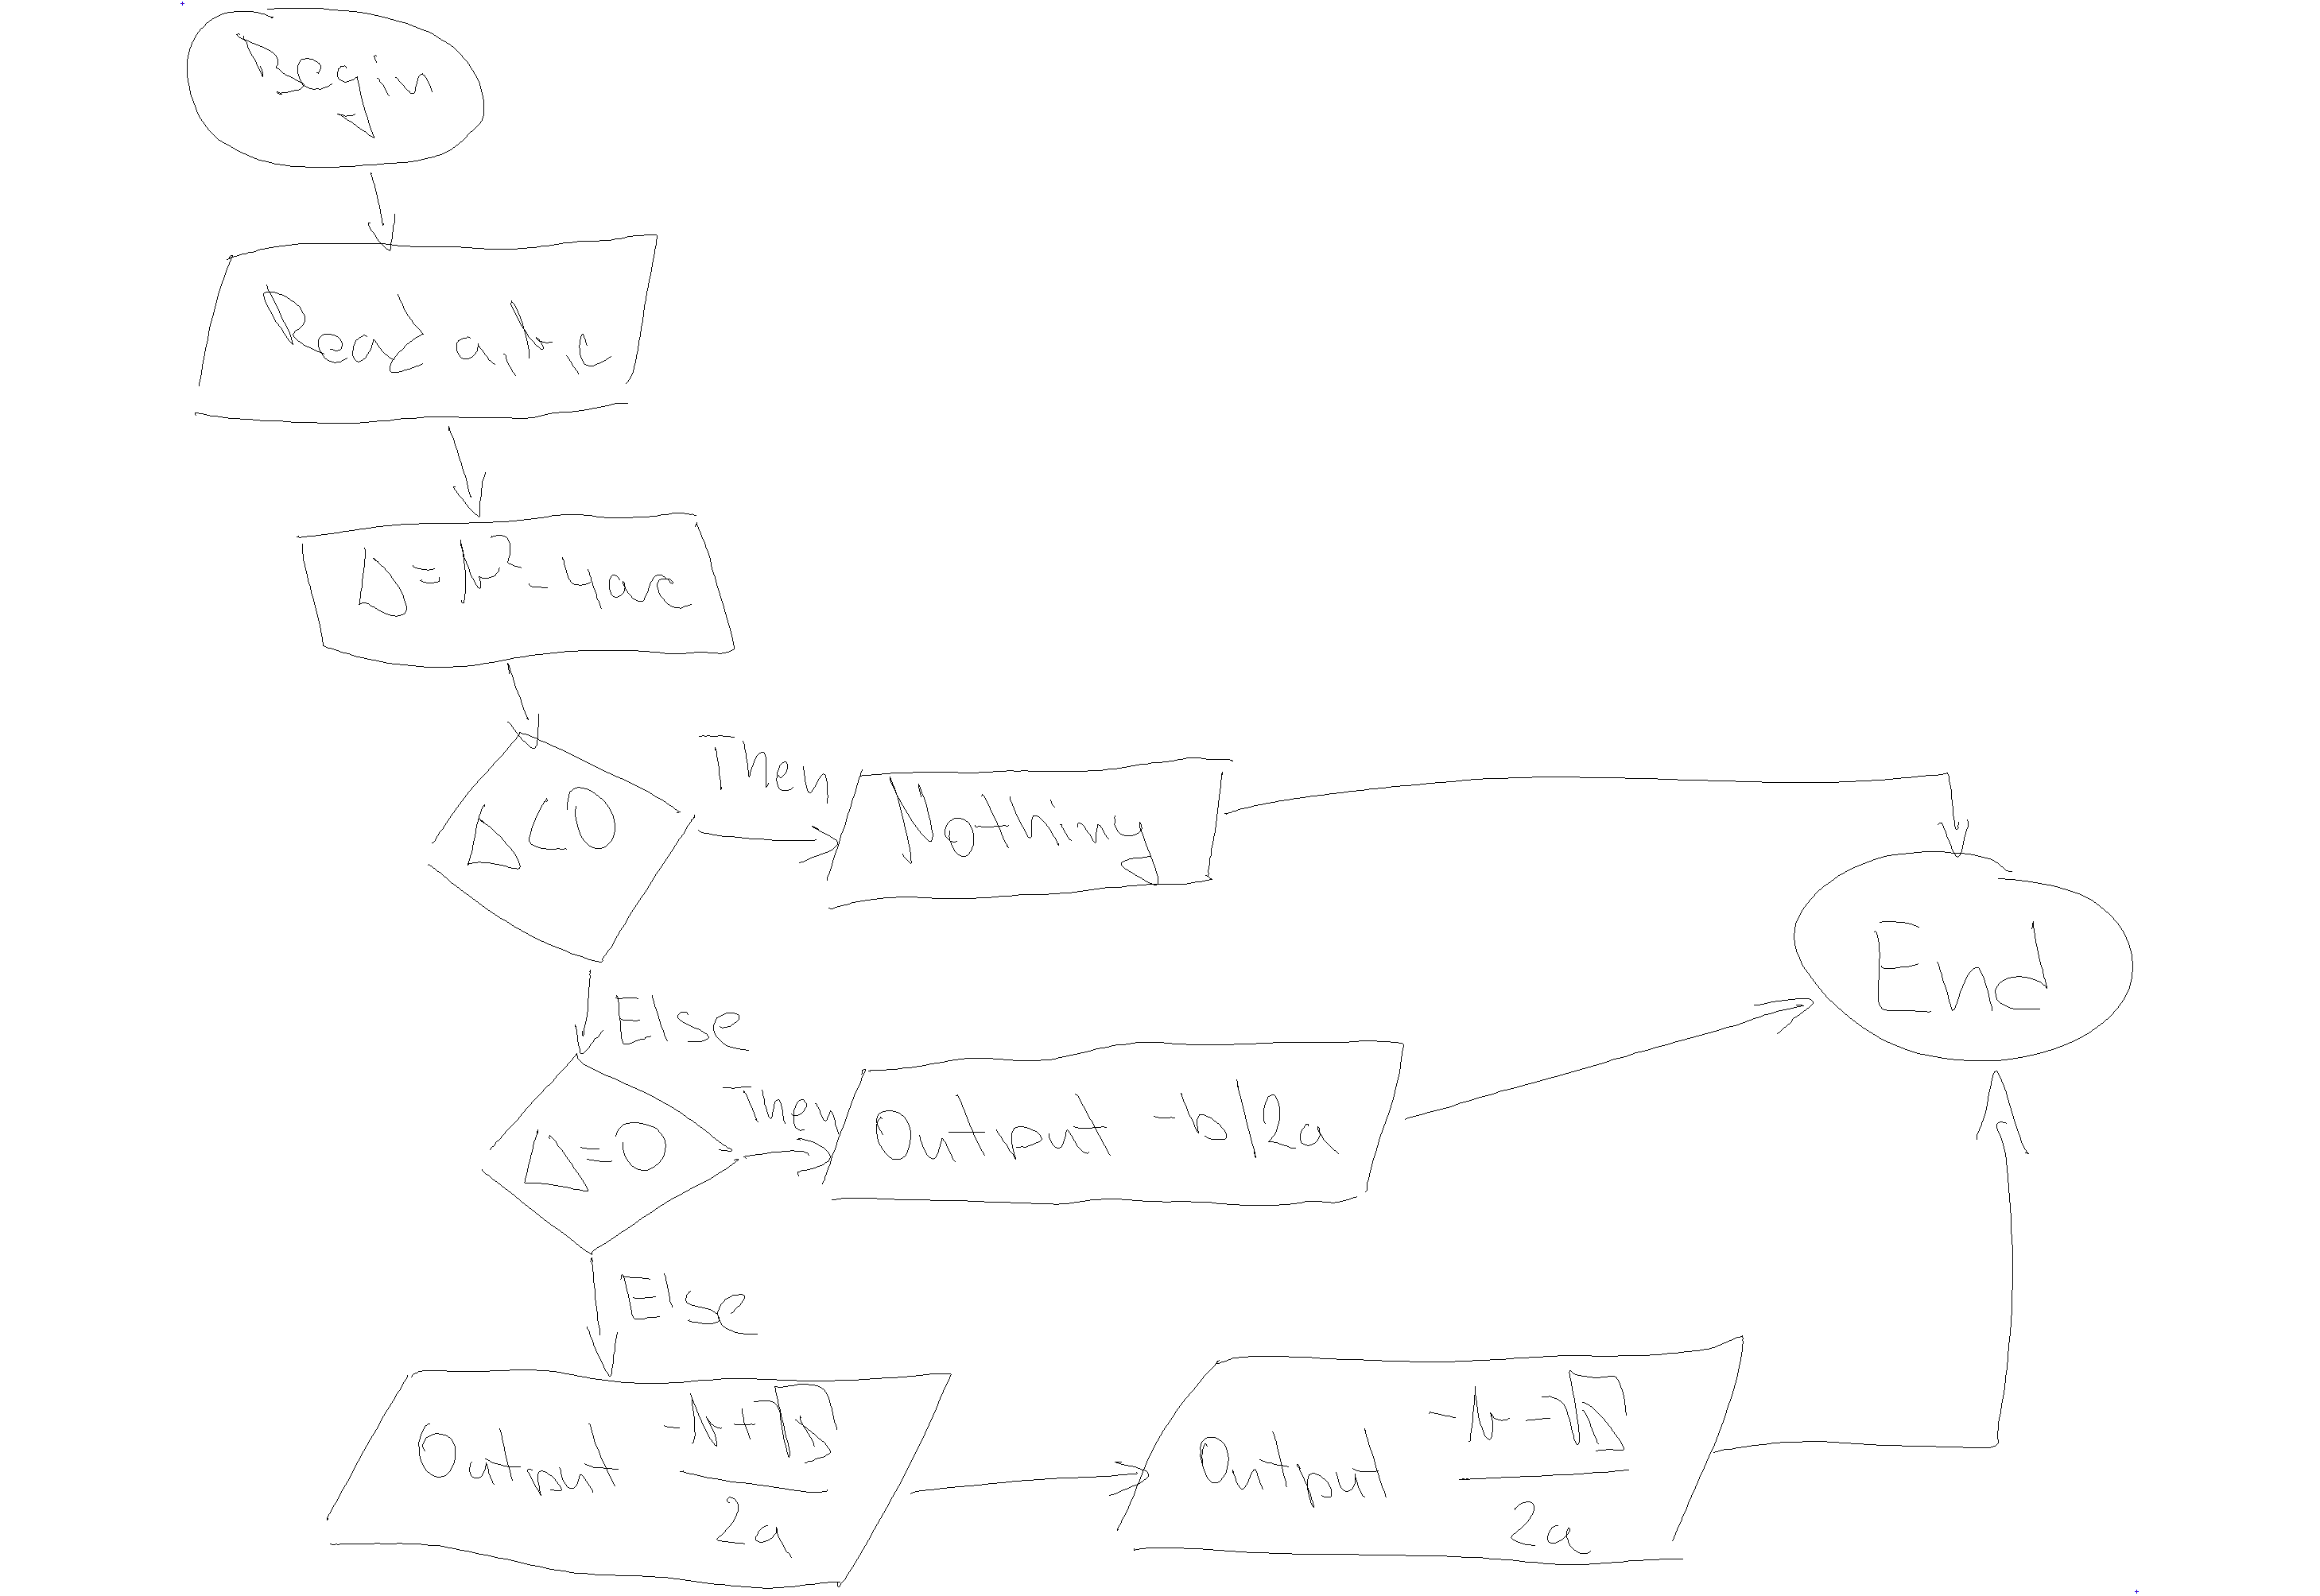 Begin
Read a, b, c
Δ=b²-4ac
Δ<0
Then
Nothing
End
Else
Δ=0
Then
Output -b/2a
Else
Output (-b+√Δ)/2a
Output (-b-√Δ)/2a